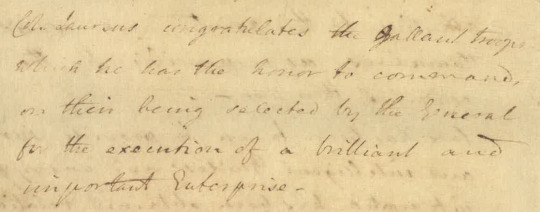 Col. Laurens congratulates the gallant troops
which he has the honor to command,
on their being selected by the General
for the execution of a brilliant and
important Enterprise -